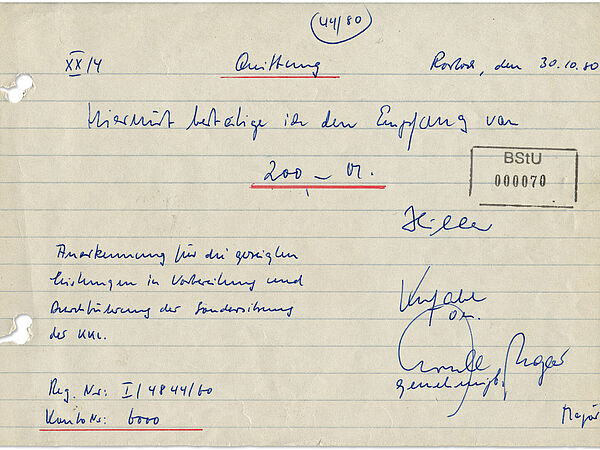 44/80
XX/4 Quittung Rostock, den 30.10.80
Hiermit bestätige ich den Empfang von
200,– M.
BStU
000070
Hiller
Anerkennung für die gezeigten
Leistungen in Vorbereitung und
Durchführung der Sondersitzung
der KKL.
genehmigt:
Reg. Nr.: I/4844/60
Konto Nr.: 6000
Major